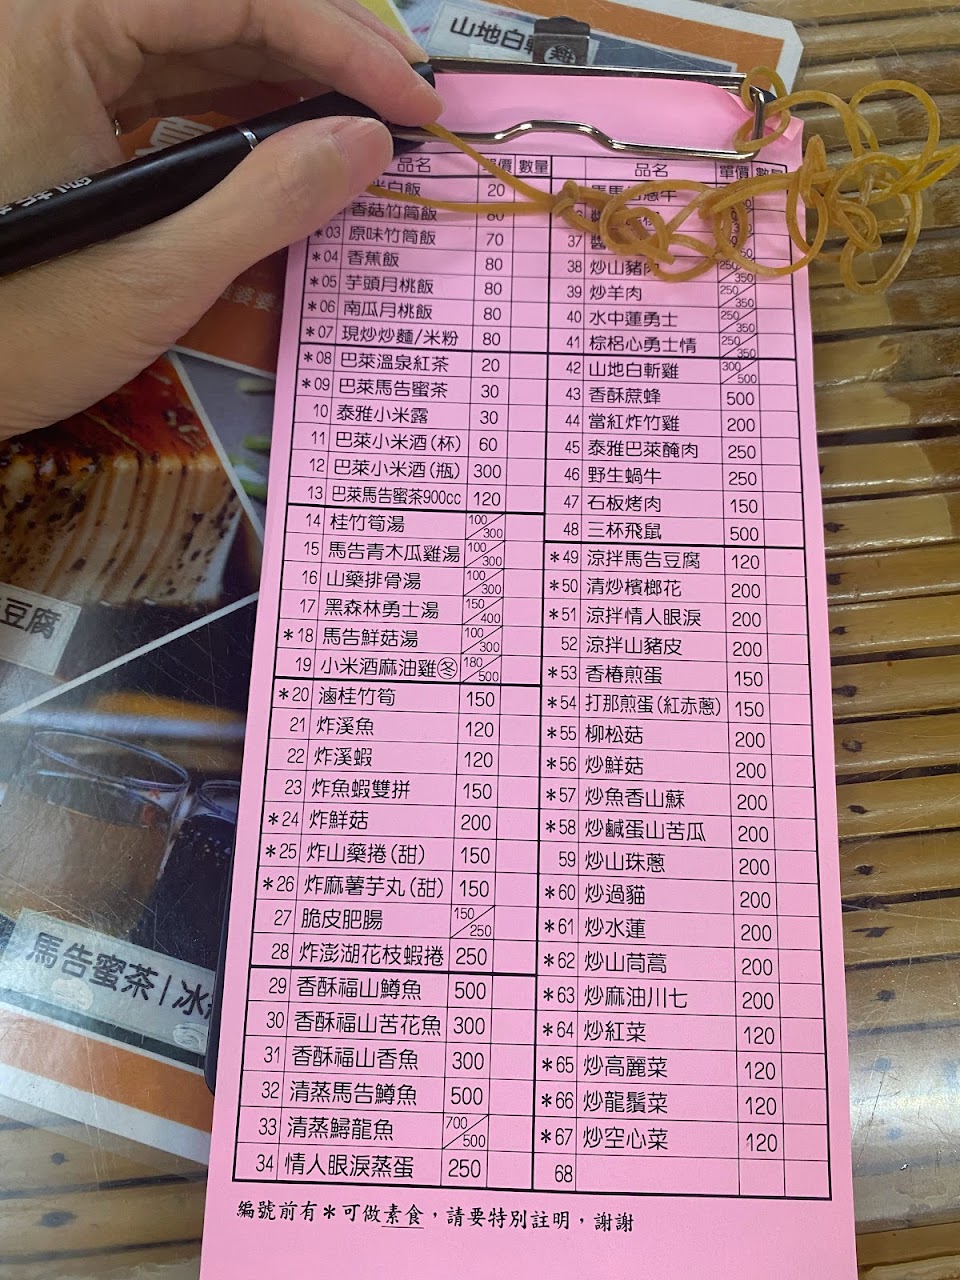 山地白斬
品名 單價 數量
白飯 20
香菇竹筒飯 80
*03 原味竹筒飯 70
*04 香蕉飯 80
*05 芋頭月桃飯 80
*06 南瓜月桃飯 80
*07 現炒炒麵/米粉 80
*08 巴萊溫泉紅茶 20
*09 巴萊馬告蜜茶 30
10 泰雅小米露 30
11 巴萊小米酒(杯) 60
12 巴萊小米酒(瓶) 300
13 巴萊馬告蜜茶900cc 120
14 桂竹筍湯 100/300
15 馬告青木瓜雞湯 100/300
16 山藥排骨湯 100/300
17 黑森林勇士湯 150/400
*18 馬告鮮菇湯 100/300
19 小米酒麻油雞㊅ 180/500
*20 滷桂竹筍 150
21 炸溪魚 120
22 炸溪蝦 120
23 炸魚蝦雙拼 150
*24 炸鮮菇 200
*25 炸山藥捲(甜) 150
*26 炸麻薯芋丸(甜) 150
27 脆皮肥腸 150/250
28 炸澎湖花枝蝦捲 250
29 香酥福山鱒魚 500
30 香酥福山苦花魚 300
31 香酥福山香魚 300
32 清蒸馬告鱒魚 500
33 清蒸鱘龍魚 700/500
34 情人眼淚蒸蛋 250
品名 單價 數量
37
38 炒山豬肉 250/350
39 炒羊肉 250/350
40 水中蓮勇士 250/350
41 棕梠心勇士情 250/350
42 山地白斬雞 300/500
43 香酥蔗蜂 500
44 當紅炸竹雞 200
45 泰雅巴萊醃肉 250
46 野生蝸牛 250
47 石板烤肉 150
48 三杯飛鼠 500
*49 涼拌馬告豆腐 120
*50 清炒檳榔花 200
*51 涼拌情人眼淚 200
52 涼拌山豬皮 200
*53 香椿煎蛋 150
*54 打那煎蛋(紅赤蔥) 150
*55 柳松菇 200
*56 炒鮮菇 200
*57 炒魚香山蘇 200
*58 炒鹹蛋山苦瓜 200
59 炒山珠蔥 200
*60 炒過貓 200
*61 炒水蓮 200
*62 炒山茼蒿 200
*63 炒麻油川七 200
*64 炒紅菜 120
*65 炒高麗菜 120
*66 炒龍鬚菜 120
*67 炒空心菜 120
68
編號前有*可做素食，請要特別註明，謝謝
豆腐
馬告蜜茶/冰